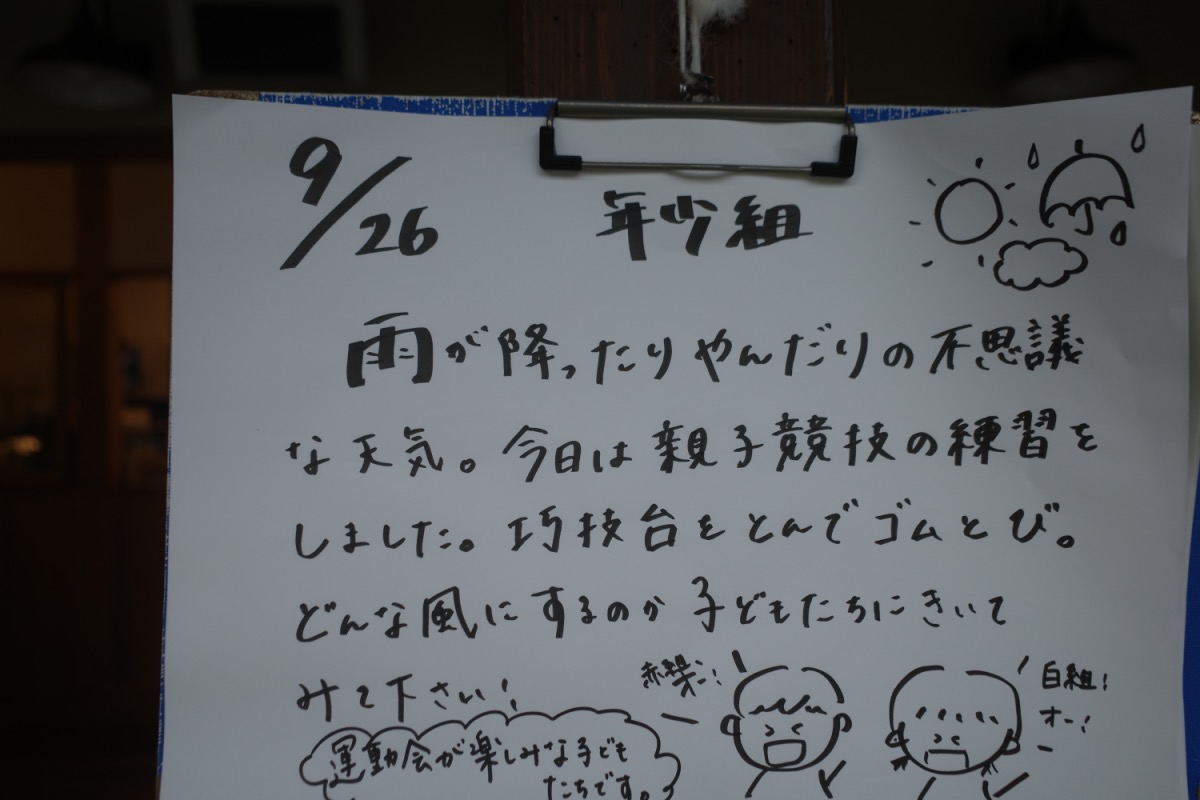 9/26
年少組
雨が降ったりやんだりの不思議
な天気。今日は親子競技の練習を
しました。巧技台をとんでゴムとび。
どんな風にするのか子どもたちにきいて
みて下さい!
赤組オー!
白組!
オー!
運動会が楽しみな子ども
たちです。